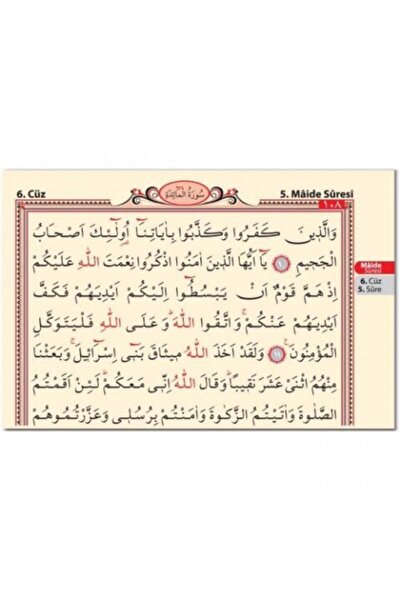 6. Cüz
سُورَةُ الْمَائِدَةِ
5. Mâide Sûresi
١٠٨
وَالَّذِينَ كَفَرُوا وَكَذَّبُوا بِاٰيَاتِنَٓا اُو۬لٰٓئِكَ اَصْحَابُ
الْجَحِيمِ ﴿١٠﴾ يَٓا اَيُّهَا الَّذِينَ اٰمَنُوا اذْكُرُوا نِعْمَتَ اللّٰهِ عَلَيْكُمْ
اِذْ هَمَّ قَوْمٌ اَنْ يَبْسُطُٓوا اِلَيْكُمْ اَيْدِيَهُمْ فَكَفَّ
اَيْدِيَهُمْ عَنْكُمْۚ وَاتَّقُوا اللّٰهَۜ وَعَلَى اللّٰهِ فَلْيَتَوَكَّلِ
الْمُؤْمِنُونَ۟ ﴿١١﴾ وَلَقَدْ اَخَذَ اللّٰهُ مِيثَاقَ بَنِٓى اِسْرَٓائِيلَۚ وَبَعَثْنَا
مِنْهُمُ اثْنَىْ عَشَرَ نَقِيبًاۜ وَقَالَ اللّٰهُ اِنِّى مَعَكُمْۜ لَئِنْ اَقَمْتُمُ
الصَّلٰوةَ وَاٰتَيْتُمُ الزَّكٰوةَ وَاٰمَنْتُمْ بِرُسُلِى وَعَزَّرْتُمُوهُمْ
Mâide
Sûresi
6. Cüz
5. Sûre